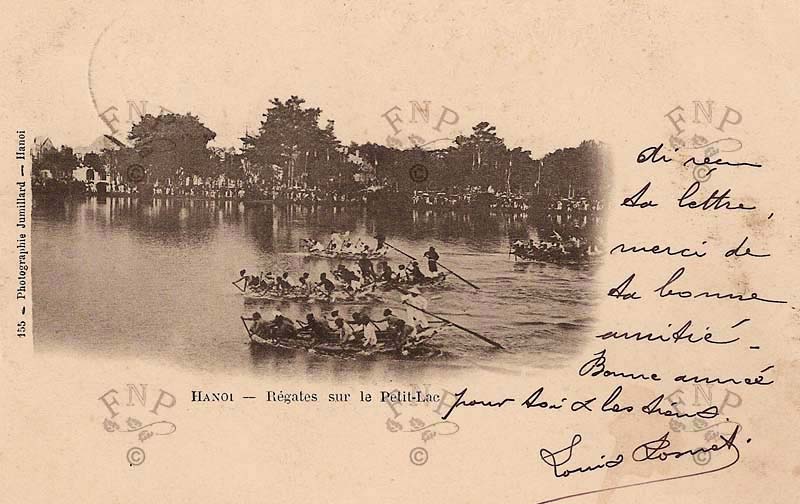 155 - Photographie Jumillard - Hanoi
HANOI — Régates sur le Petit-Lac
ta lettre,
merci de
ta bonne
amitié -
Bonne année
pour toi & les tiens.
Louis
FNP
©
FNP
©
FNP
©
FNP
©
FNP
©
FNP
©